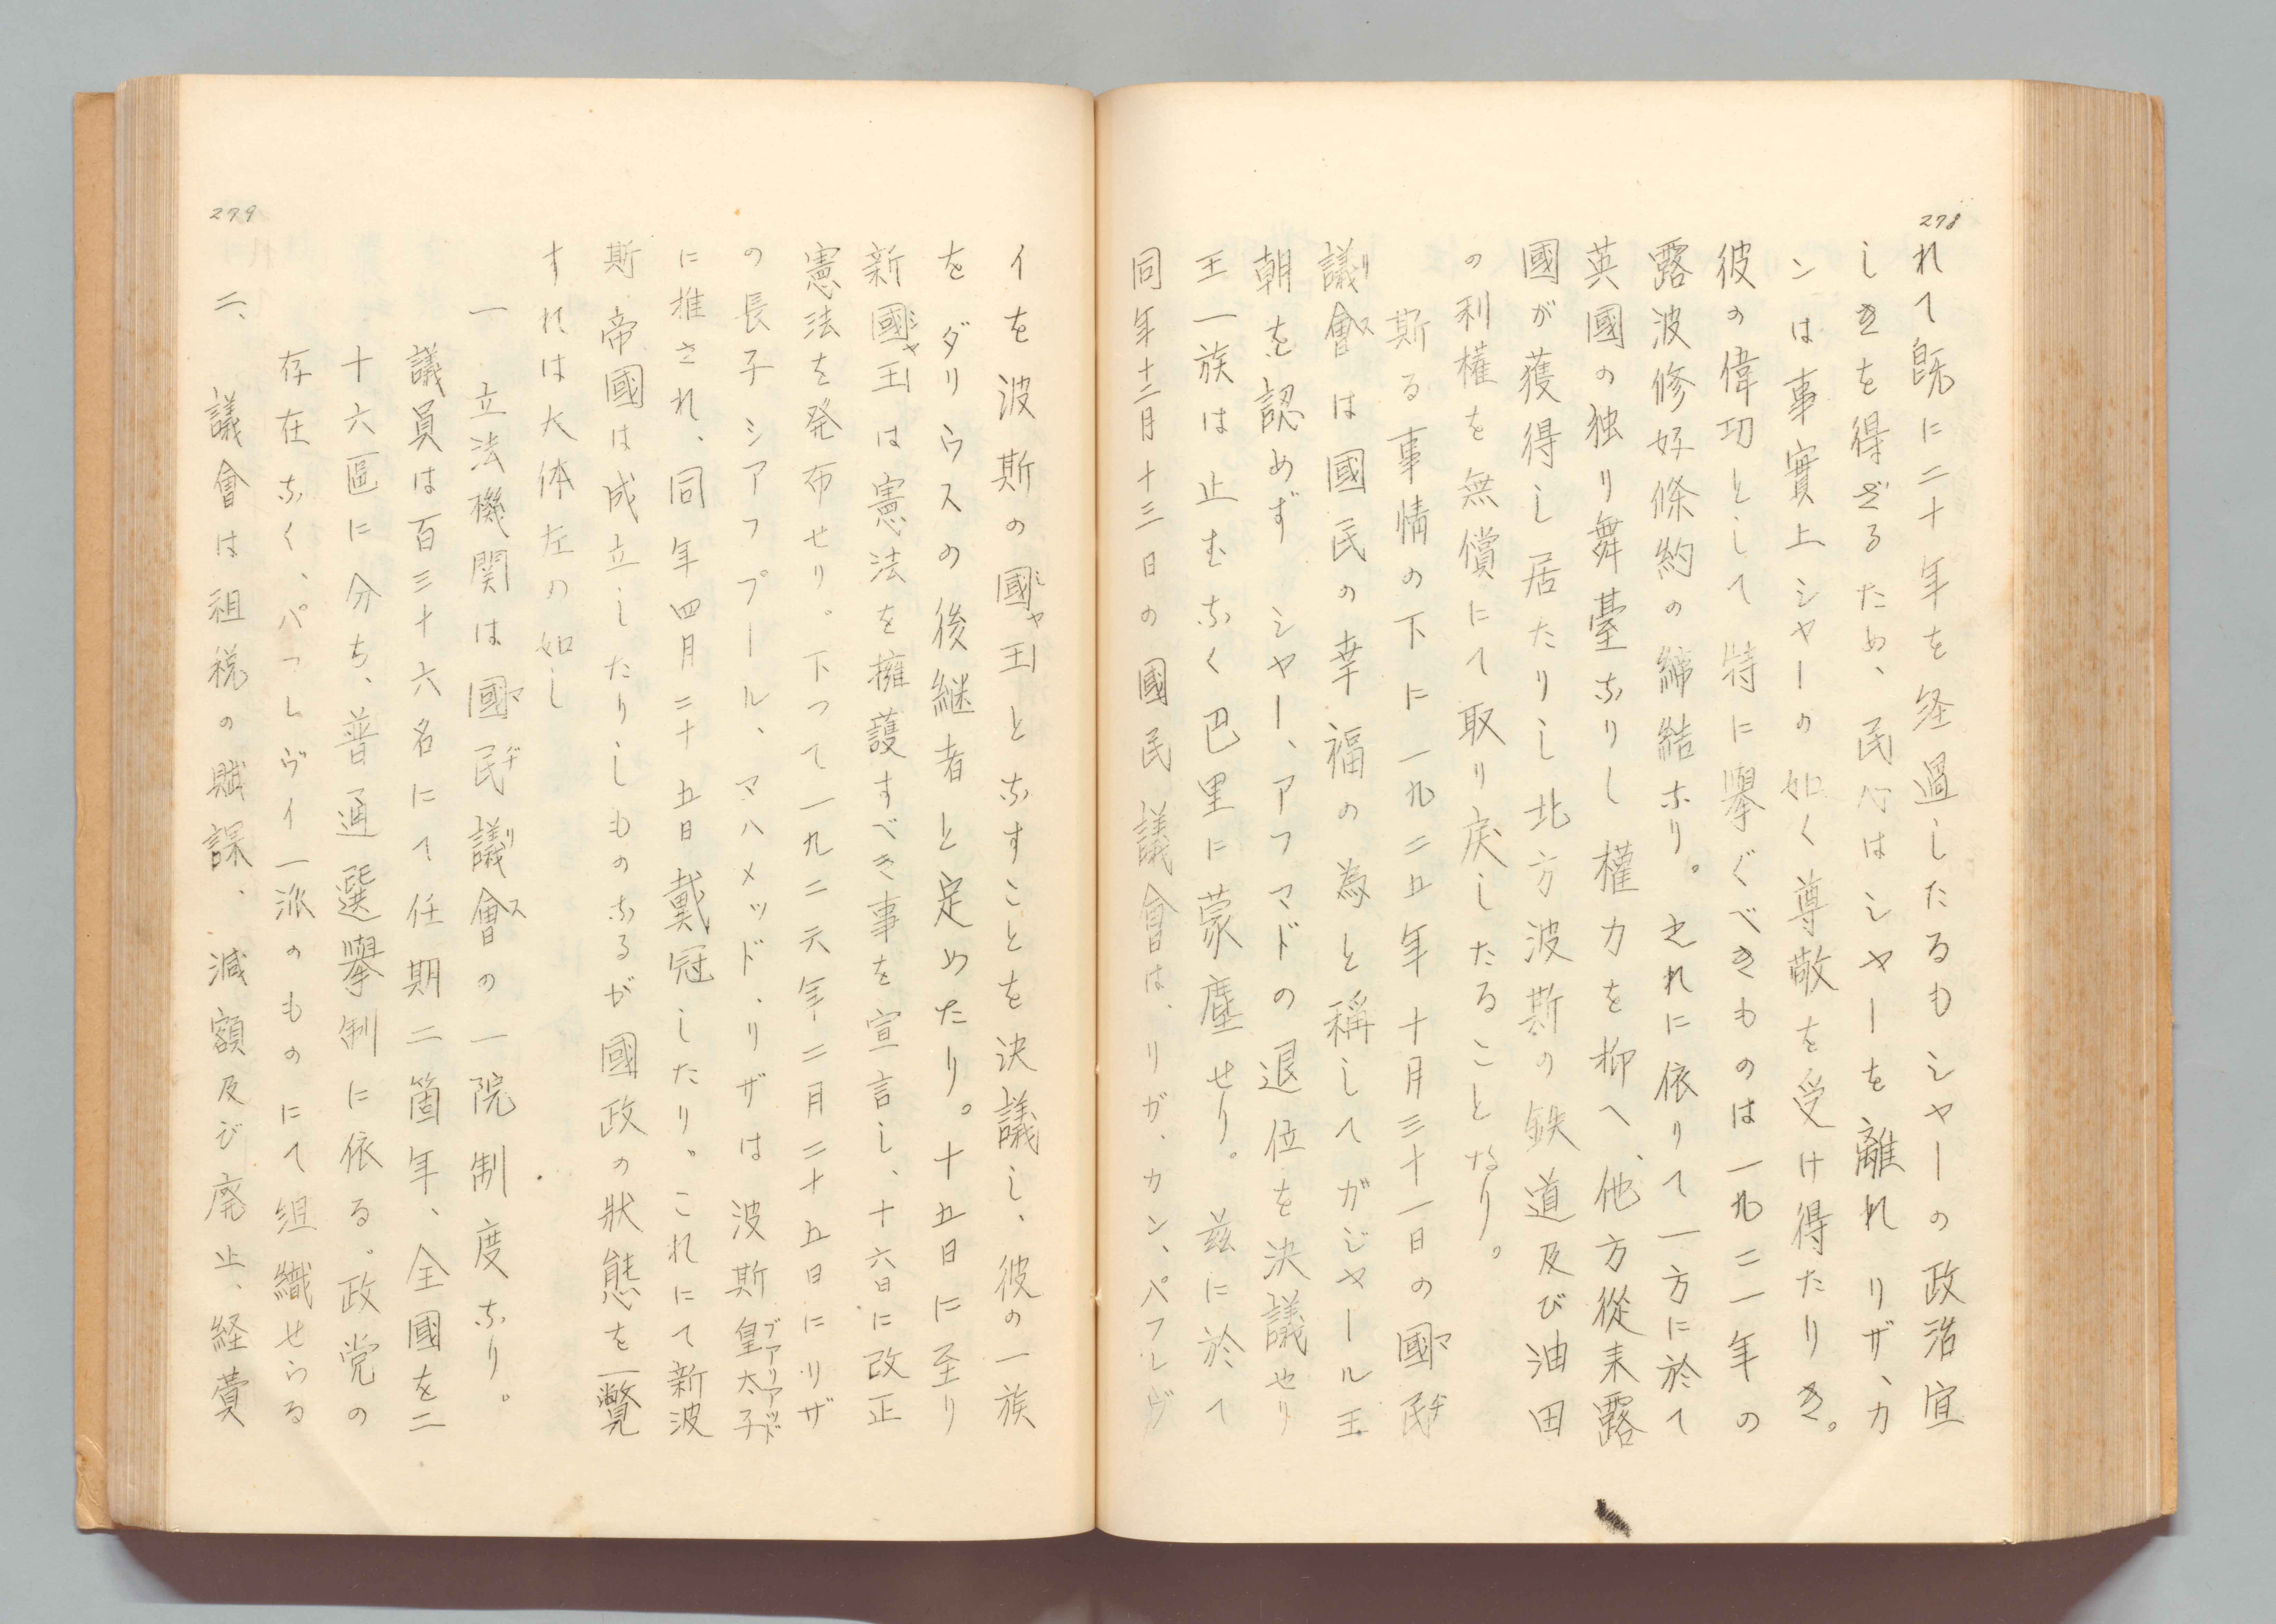 278
れて既に二十年を経過したるもシャーの政治宜
しきを得ざるため、民心はシャーを離れ リザ、カ
ンは事實上シャーの如く尊敬を受け得たりき。
彼の偉功として 特に擧ぐべきものは一九二一年の
露波修好條約の締結なり。之れに依りて一方に於て
英國の独り舞臺なりし 權力を抑へ、他方從来露
國が獲得し居たりし北方波斯の鉄道及び油田
の利權を無償にて取り戻したることなり。
斯る事情の下に一九二五年十月三十一日の國民
議會は國民の幸福の為と稱してガジャール王
朝を認めず シャー、アフマドの退位を決議せり
王一族は止むなく巴里に蒙塵せり。茲に於て
同年十二月十三日の國民議會は、リザ、カン、パフレヴ
イを波斯の國王となすことを決議し、彼の一族
をダリウスの後継者と定めたり。十五日に至り
新國王は憲法を擁護すべき事を宣言し、十六日に改正
憲法を発布せり。下って一九二六年二月二十五日にリザ
の長子シアフプール、マハメッド、リザは 波斯皇太子
に推され、同年四月二十五日戴冠したり。これにて新波
斯帝國は成立したりしものなるが國政の狀態を一瞥
すれは大体左の如し
一 立法機関は國民議會の一院制度なり。
議員は百三十六名にて任期二箇年、全國を二
十六區に分ち、普通選擧制に依る。政党の
存在なく、パフレヴイ一派のものにて組織せらる
二、 議會は祖税の賦課、減額及び廃止、経費
279